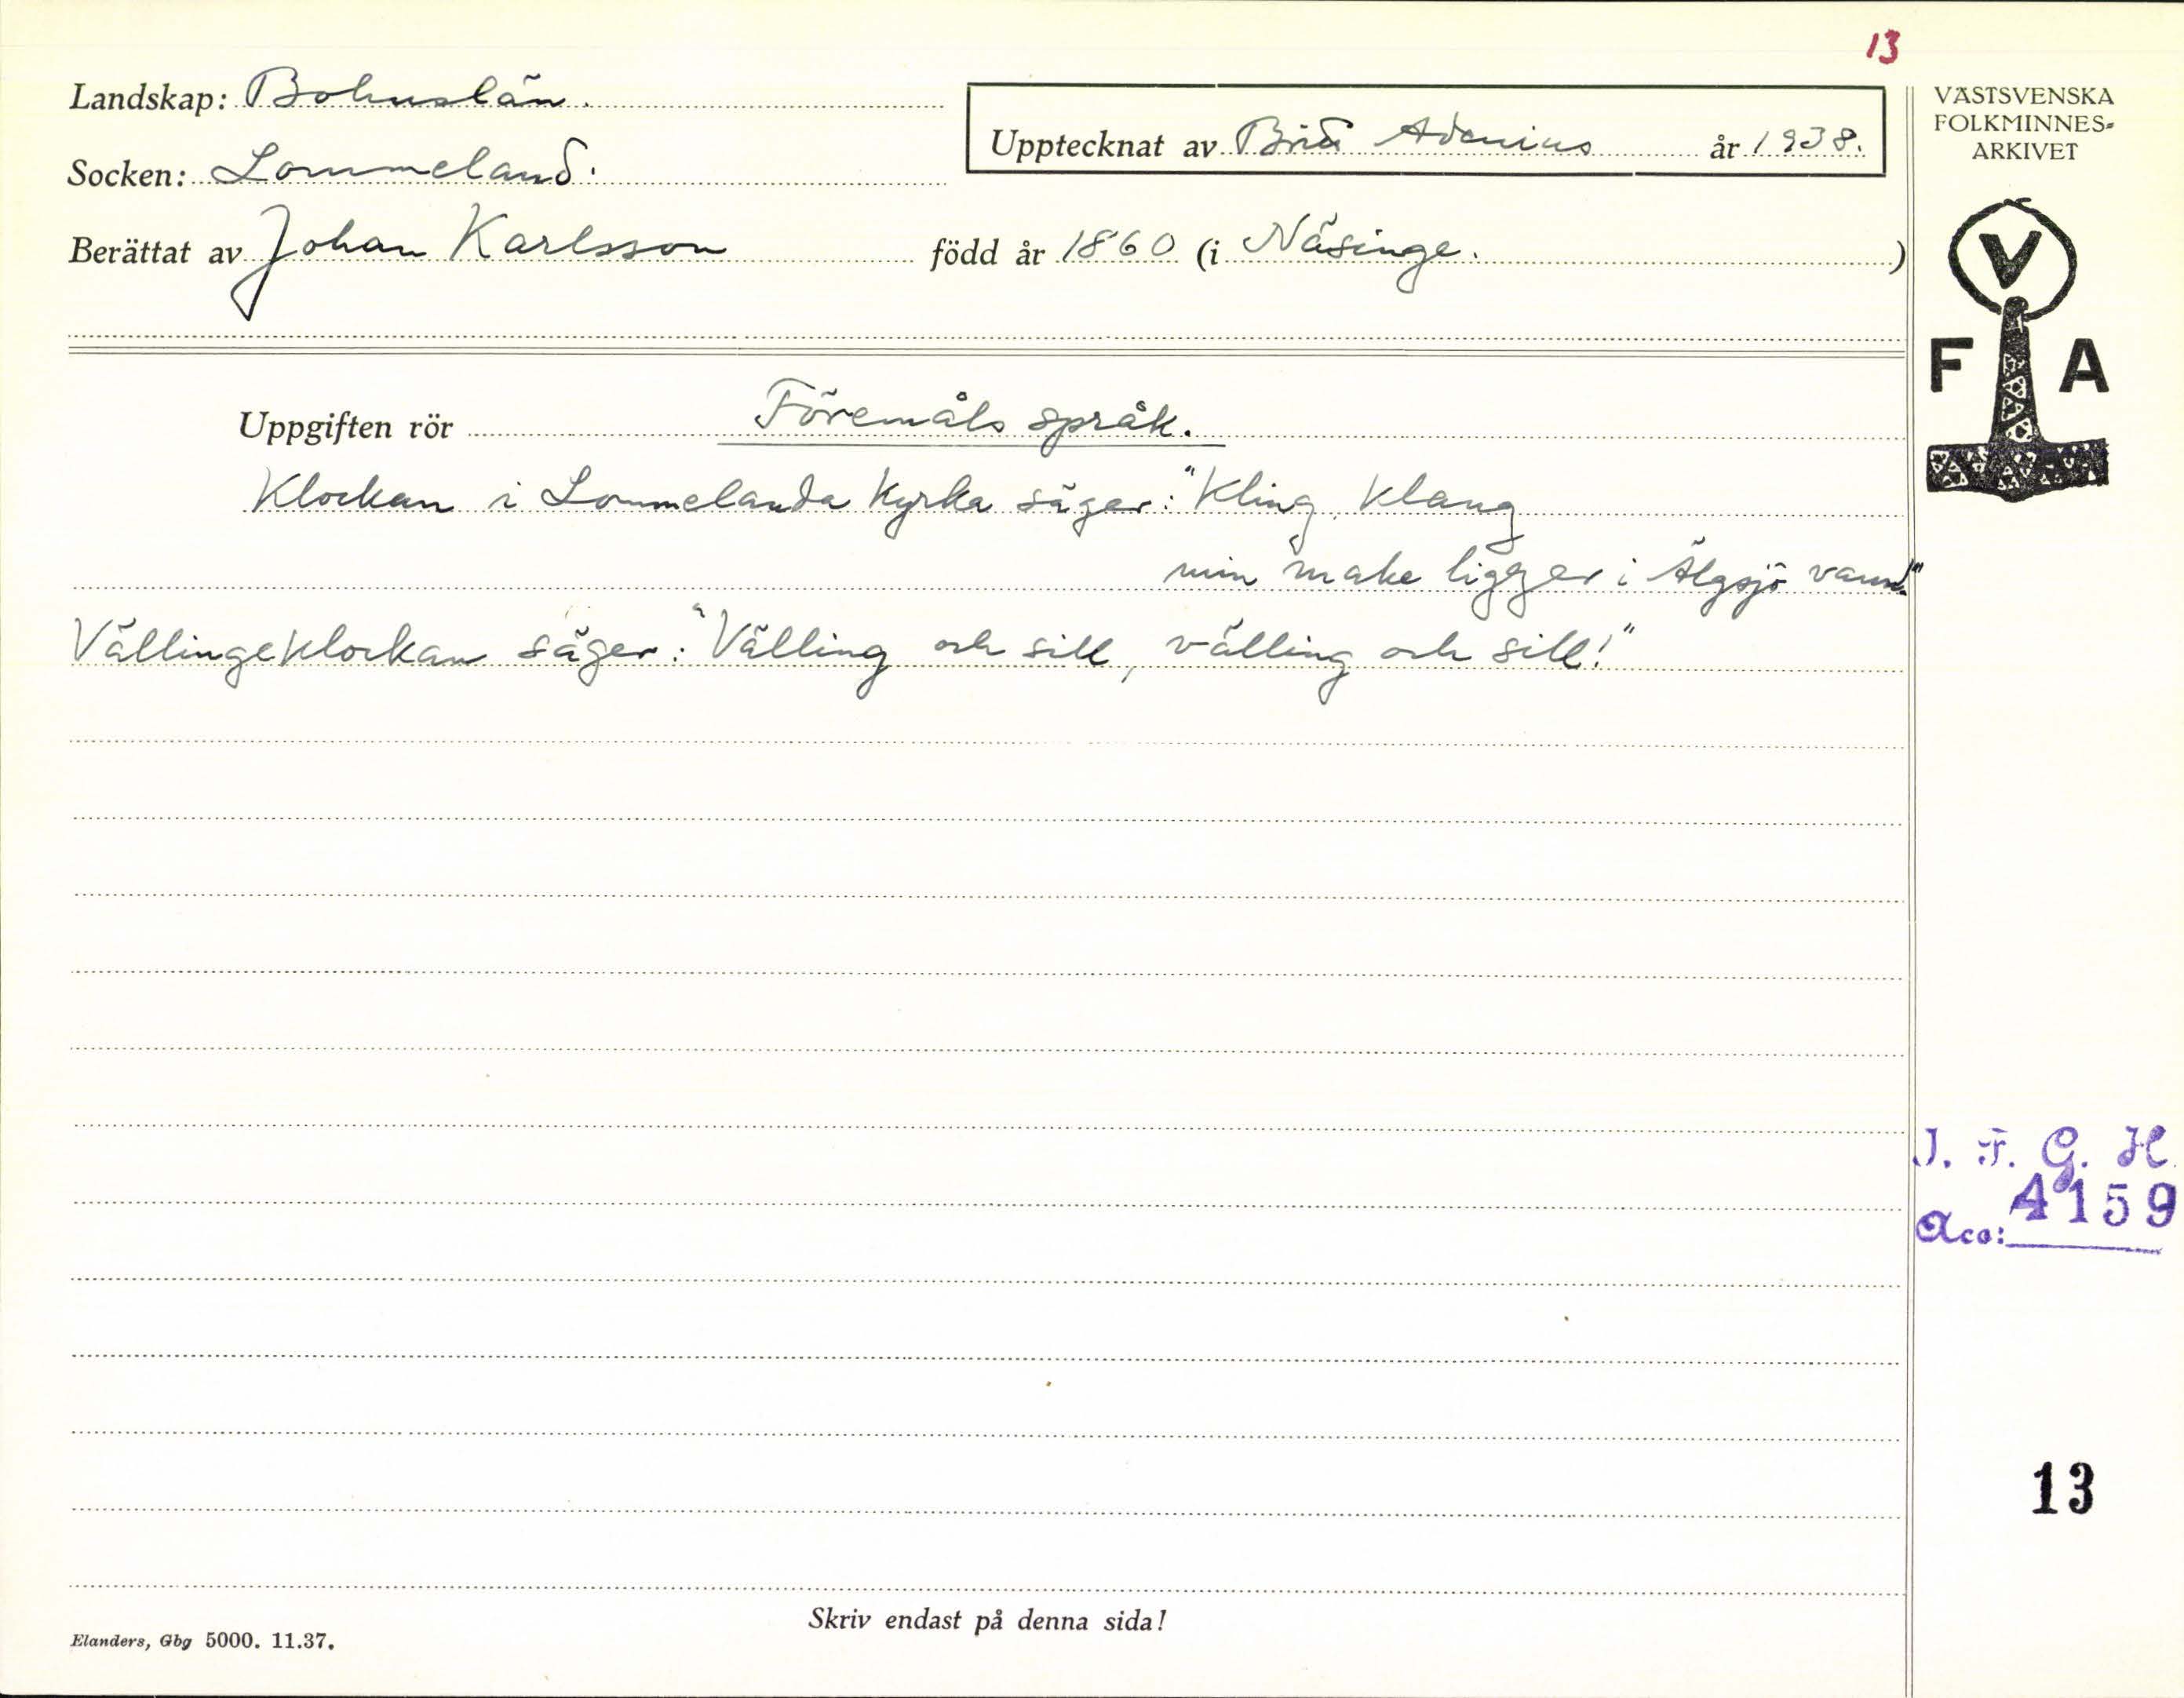 13
Landskap: Bohuslän.
Socken: Lommeland.
Upptecknat av Brita Adenius år 1938.
Berättat av Johan Karlsson född år 1860 (i Näsinge.)
VÄSTSVENSKA
FOLKMINNES-
ARKIVET
V
F A
Uppgiften rör Föremåls språk.
Klockan i Lommelanda kyrka säger: "Kling, klang
min make ligger i Älgsjö vann."
Vällingeklockan säger: "Välling och sill, välling och sill!"
I. F. G. H.
Acc: 4159
13
Skriv endast på denna sida!
Elanders, Gbg 5000. 11.37.